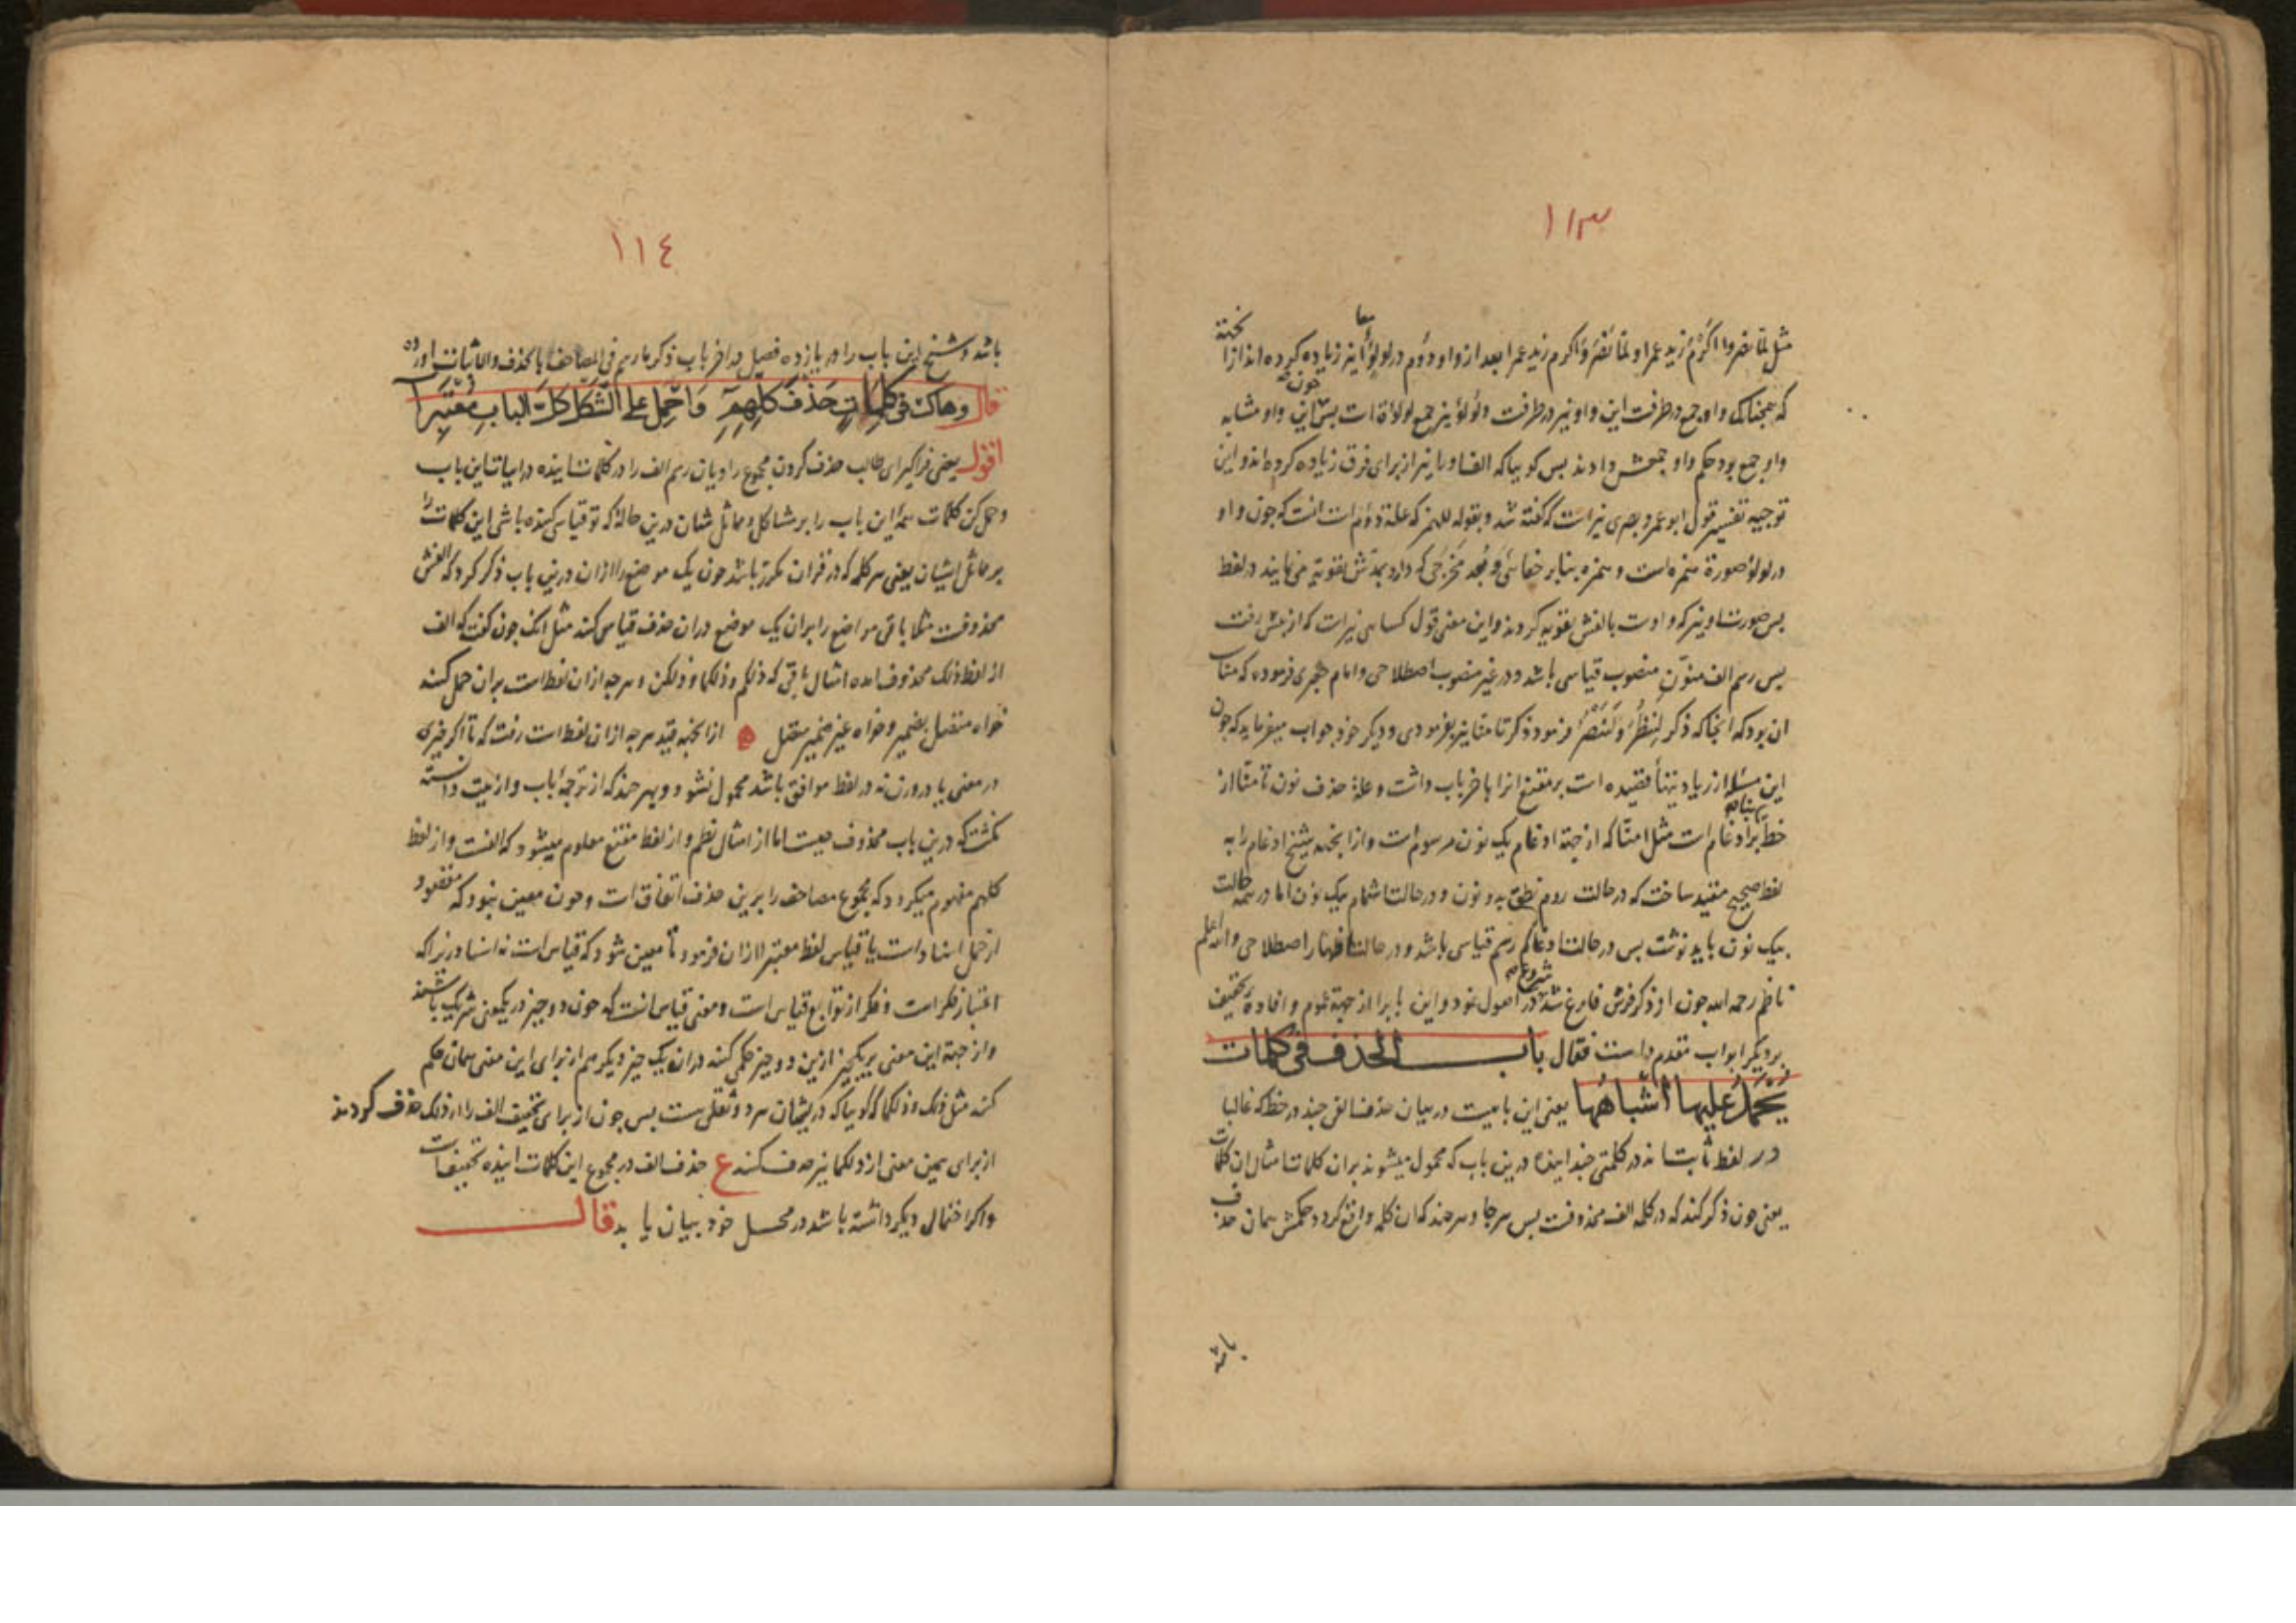 ١١٣
مثل لما نصروا اكرم زيد عمرا و لما نصر و اكرم زيد عمرا بعد از واو دوم در لولؤا نيز زياده كرده اند ازا
كه همجنانكه واو جمع در طرفست اين واو نيز در طرفست و لؤلؤ نيز جمع لولاة است بس اين واو مشابه
واو جمع بود حكم واو جمعش دادند بس كوييا كه الف او را نيز از براى فرق زياده كرده اند و اين
توجيه تفسير قول ابو عمرو بصرى نيز است كه كفته شد و بقوله للهمز كه علة دوم است انست كه جون واو
در لولؤ صورة همزه است و همزه بنابر خفائى و بُعد مخرجى كه دارد بمدش تقويه مى نمايند در لفظ
بس صورت او نيز كه واوست بالفش تقويه كردند و اين معنى قول كسائى نيز است كه از بيش رفت
بس رسم الف منوّن منصوب قياسى باشد و در غير منصوب اصطلاحى و امام جعبرى فرموده كه مناسب
ان بود كه انجا كه ذكر لننظر و لننصر فرمود ذكر تامنا نيز بفرمودى و ديكر خود جواب ميفرمايد كه جون
اين مسئله از زيادتيهاء قصيده است بر مقنع انرا باخر باب داشت و علة حذف نون تامنا از
خط بنابر ادغام است مثل امنّا كه از جهة ادغام يك نون مرسوم است و از اينجهة شيخ ادغام را به
لفظ صحيح مقيد ساخت كه در حالت روم نطق بدو نون و در حالت اشمام بيك نون اما در همه حالت
بيك نون بايد نوشت بس در حالت ادغام رسم قياسى باشد و در حالت اظهار اصطلاحى و الله اعلم
ناظم رحمه الله جون از ذكر فرش فارغ شد شروع در اصول نمود و اين باب را از جهة عموم و افادة تخفيف
بر ديكر ابواب مقدم داشت فقال باب الحذف فى كلمات
يُحمَلُ عليها اشباهُها يعنى اين بابيست در بيان حذف الفى جند در خط كه غالبا
در لفظ ثابت اند در كلمتى جند اينده درين باب كه محمول ميشوند بران كلمات امثال ان كلمات
يعنى جون ذكر كند كه در كلمه الف محذوفست بس هر جا و هر جند كه ان كلمه واقع كردد حكمش همان حذف
باشد
١١٤
باشد و شيخ اين باب را در يازده فصل در اخر باب ذكر ما رسم فى المصاحف بالحذف و الاثبات اورده
قال وهاك فى كلمات حذف كلهم و احمل على الشكل كل الباب معتبرا
اقول يعنى فراكير اى طالب حذف كردن مجموع راويان رسم الف را در كلمات اينده در ابيات اين باب
و حمل كن كلمات همۀ اين باب را بر مشاكل و مماثل شان درين حالة كه تو قياس كننده باشى اين كلمات را
بر مماثل ايشان يعنى هر كلمه كه در قران مكرر باشد جون يك موضع را ازان درين باب ذكر كرد كه الفش
محذوفست مثلا باقى مواضع را بران يك موضع دران حذف قياس كند مثل انك جون كفت كه الف
از لفظ ذلك محذوف امده امثال باقى كه ذلكم و ذلكما و ذلكن و هر جه ازان لفظ است بران حمل كنند
خواه متصل بضمير و خواه غير ضمير متصل از اينجهة قيد هر جه ازان لفظ است رفت كه تا اكر جيزى
در معنى يا در وزن نه در لفظ موافق باشد محمول نشود و بهر جند كه از ترجمۀ باب و از بيت دانسته
نكشت كه درين باب محذوف جيست اما از امثال نظم و از لفظ مقنع معلوم ميشود كه الفست و از لفظ
كلهم مفهوم ميكردد كه مجموع مصاحف را برين حذف اتفاق است و جون معين نبود كه مقصود
از حمل اسناد است يا قياس لفظ معتبرا ازان فرمود تا معين شود كه قياس است نه اسناد زيرا كه
اعتبار فكر است و فكر از توابع قياس است و معنى قياس انست كه جون دو جيز در يكمعنى شريك باشند
و از جهة اين معنى بر يكجيز ازين دو جيز حكمى كنند دران يك جيز ديكر هم از براى اين معنى همان حكم
كنند مثل ذلك و ذلكما كه كوييا كه در يشان هر دو ثقلى هست بس جون از براى تخفيف الف را از ذلك حذف كردند
از براى همين معنى از ذلكما نيز حذف كنند ع حذف الف در مجموع اين كلمات اينده تخفيف است
و اكر احتمالى ديكر داشته باشد در محل خود بيان يابد قال